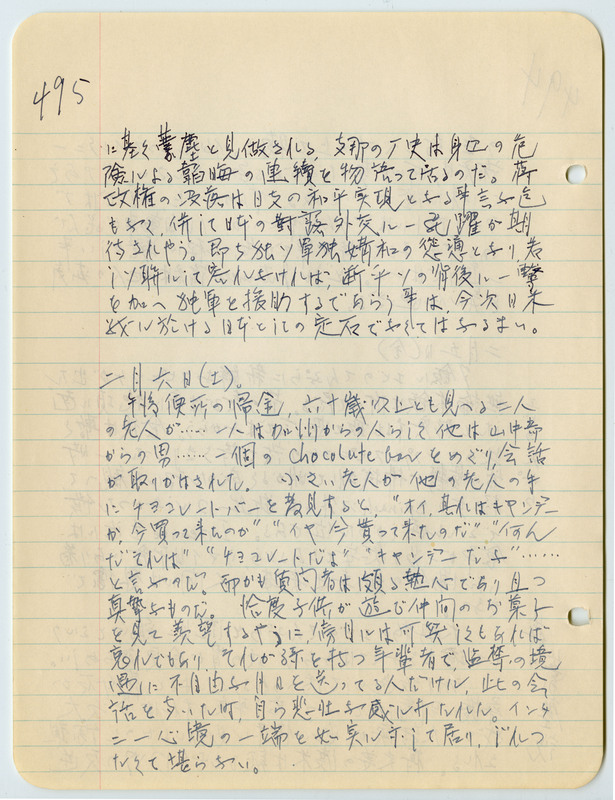 495
に基く蒙塵と見做される、支那の歴史は身辺の危
険による韜晦の連続を物語って居るのだ。蒋
政権の没落は日支の和平実現となる事言ふ迄
もなく、併して日本の対蘇外交に一飛躍が期
待されやう。即ち独ソ単独媾和の慫慂となり、若
しソ聯にして容れなければ、断乎ソの背後に一撃
を加へ独軍を援助するであらう事は、今次日米
戦に於ける日本としての定石でなくてはなるまい。
二月六日(土)。
午後便所の帰途、六十歳以上とも見へる二人
の老人が……一人は加州からの人らしく他は山中部
からの男……一個の chocolate bar をめぐり会話
が取り交はされた。小さい老人が他の老人の手
にチョコレートバーを発見すると、"オイ、其れはキャンデー
か、今買って来たのか" "イヤ今貰って来たのだ" "何ん
だそれは" "チョコレートだよ" "キャンデーだナ"……
と言ふのだ。而かも質問者は頗る熱心であり且つ
真摯なものだ。恰度子供が遊び仲間のお菓子
を見て羨望するやうに傍目には可笑しくもあれば
哀れでもあり、それが孫を持つ年輩者で、監禁の境
遇に不自由な月日を送ってる人だけに、此の会
話をきいた時、自ら悲壮な感に打たれた。インタ
ニー心境の一端を如実に示して居り、じれつ
たくて堪らない。